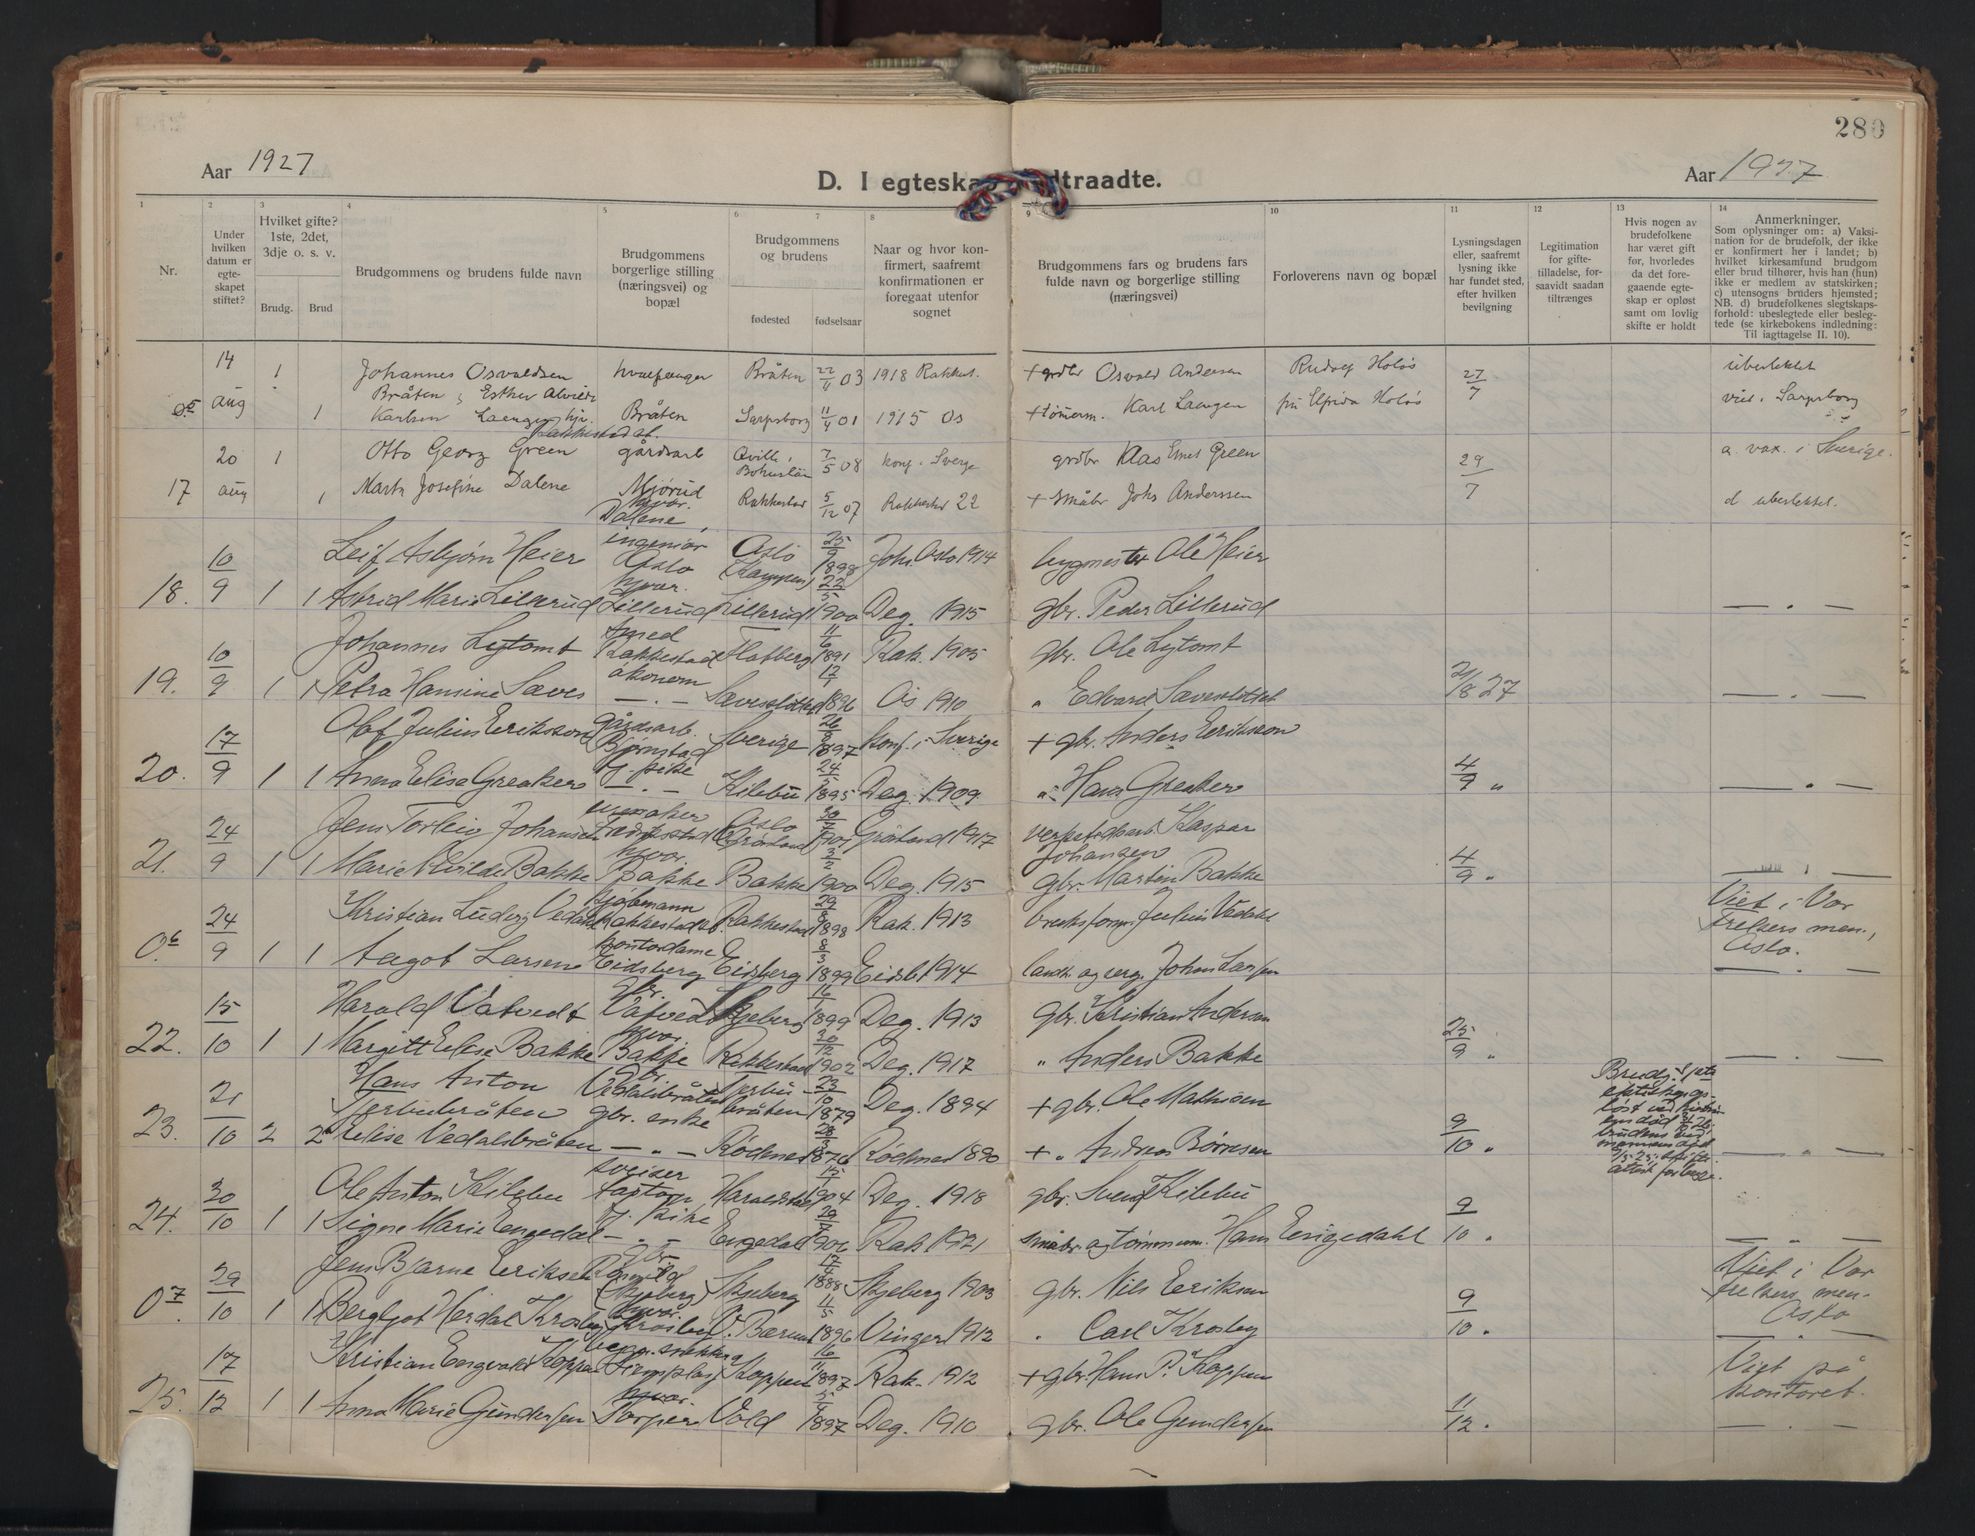 280
Aar 1927
D. I egteskap indtraadte.
Aar 1927
1 2 3 4 5 6 7 8 9 10 11 12 13 14
Nr.
Under hvilken datum er egte-skapet stiftet?
Hvilket gifte? 1ste, 2det, 3dje o. s. v.
Brudg. Brud
Brudgommens og brudens fulde navn
Brudgommens borgerlige stilling (næringsvei) og bopæl
Brudgommens og brudens
fødested fødselsaar
Naar og hvor kon-firmert, saafremt konfirmationen er foregaat utenfor sognet
Brudgommens fars og brudens fars fulde navn og borgerlige stilling (næringsvei)
Forloverens navn og bopæl
Lysningsdagen eller, saafremt lysning ikke har fundet sted, efter hvilken bevilgning
Legitimation for gifte-tilladelse, for-saavidt saadan tiltrænges
Hvis nogen av brudefolkene har været gift før, hvorledes da det fore-gaaende egte-skap er opløst samt om lovlig skifte er holdt
Anmerkninger.
Som oplysninger om: a) Vaksi-nation for de brudefolk, der ikke er konfirmert her i landet; b) hvilket kirkesamfund brudgom eller brud tilhører, hvis han (hun) ikke er medlem av statskirken; c) utensogns bruders hjemsted; NB. d) brudefolkenes slegtskaps-forhold: ubeslegtede eller besleg-tede (se kirkebokens indledning: Til iagttagelse II. 10).
14 aug 1 Johannes Osvaldsen Bråten hvalfanger Bråten 22/4 03 1918 Rakkest. + grdbr Osvald Andersen Rudolf Holøs 27/7 ubeslektet
05 1 Esther Alvilde Karlsen Laengen hjv. Bråten Sarpsborg 11/4 01 1915 Os + tømerm. Karl Laengen fru Elfrida Holøs viet i Sarpsborg
20 aug 1 Otto Georg Green gårdsarb Qville, Bohuslän 7/5 08 konf. i Sverge grdbr Klas Ernst Green 29/7 a. vax. i Sverige.
17 1 Marta Josefine Dalene Mjørud hjvær. Dalene Rakkestad 5/12 07 Rakkestad 22 + småbr Johs Anderssen d ubeslektet.
10/9 1 Leif Asbjørn Heier ingeniør Oslo Oslo (Kampen) 25/9 1898 Joh. Oslo 1914 bygmester Ole Heier
18. 1 Astrid Marie Lillerud hjvær. Lillerud Lillerud 22/5 1900 Deg. 1915 gbr. Peder Lillerud — " —
10/9 1 Johannes Lytomt smed Rakkestad Flatberg 11/6 1891 Rak. 1905 gbr. Ole Lytomt
19. 1 Petra Hansine Sæves økonom — " — Sæveslottet 17/1 1896 Os 1910 " Edvard Sæveslottet 21/8 27 — " —
17/9 1 Olaf Julius Eriksson gårdsarb. Bjørnstad Sverige 26/2 1897 Konf. i Sverige + gbr. Anders Eriksson
20. 1 Anna Elise Greaker tj. pike — " — Kilebu 24/5 1895 Deg. 1909 " Hans Greaker 4/9 " — " —
24/9 1 Jens Torleiv Johansen Oslo Grønland 30/4 1901 Grønland 1917 verkstedarb. Kaspar Johansen
21. 1 Marie Alvilde Bakke hjvær. Bakke Bakke 3/2 1900 Deg. 1915 gbr. Martin Bakke 4/9 "
24/9 1 Kristian Ludvig Vedahl kjøbmann Rakkestad st. Rakkestad 29/8 1898 Rak. 1913 bruksform. Julius Vedahl Viet i Vor Frelsers men., Oslo.
06. 1 Aagot Larsen kontordame Eidsberg Eidsberg 8/3 1899 Eidsb. 1914 landh. og serg. Johan Larsen — " —
15/10 1 Harald Vatvedt gbr. Vatvedt Skjeberg 16/1 1899 Deg. 1913 gbr. Kristian Andersen
22. 1 Margitt Elise Bakke hjvær. Bakke Rakkestad 30/12 1902 Deg. 1917 " Anders Bakke 25/9 " — " —
21/10 2 Hans Anton Kjerbubråten gbr. Vedalsbråten Kjerbubråten 23/10 1879 Deg. 1894 + gbr. Ole Mathisen
23. 2 Elise Vedalsbråten gbr. enke — " — Rødenes 28/3 1876 Rødenes 1890 + " Andreas Børresen 9/10 " — " —
20/10 1 Ole Anton Kilebu sveiser Haraldstad 15/1 1904 Deg. 1918 gbr. Svend Kilebu
24. 1 Signe Marie Engedal tj. pike — " — Engedal 29/9 1906 Rak 1921 småbr. og tømmerm. Hans Engedahl 9/10 " — " —
29/10 1 Jens Bjarne Eriksen gbr. (Skjeberg) Skjeberg 17/4 1888 Skjeberg 1903 gbr. Nils Eriksen Viet i Vor Frelsers men. Oslo
07 1 Bergljot Herdal Krosby hjvær. Krosby V. Bærum 11/5 1896 Vinger 1912 " Carl Krosby 9/10 " — " —
17/12 1 Kristian Engvald Koppen Koppen 16/11 1897 Rak. 1912 + gbr. Hans P. Koppen Viet på kontoret.
25. 1 Anna Marie Gundersen hjvær. Torper Vold 1897 Deg. 1910 gbr. Ole Gundersen 11/12 " — " —